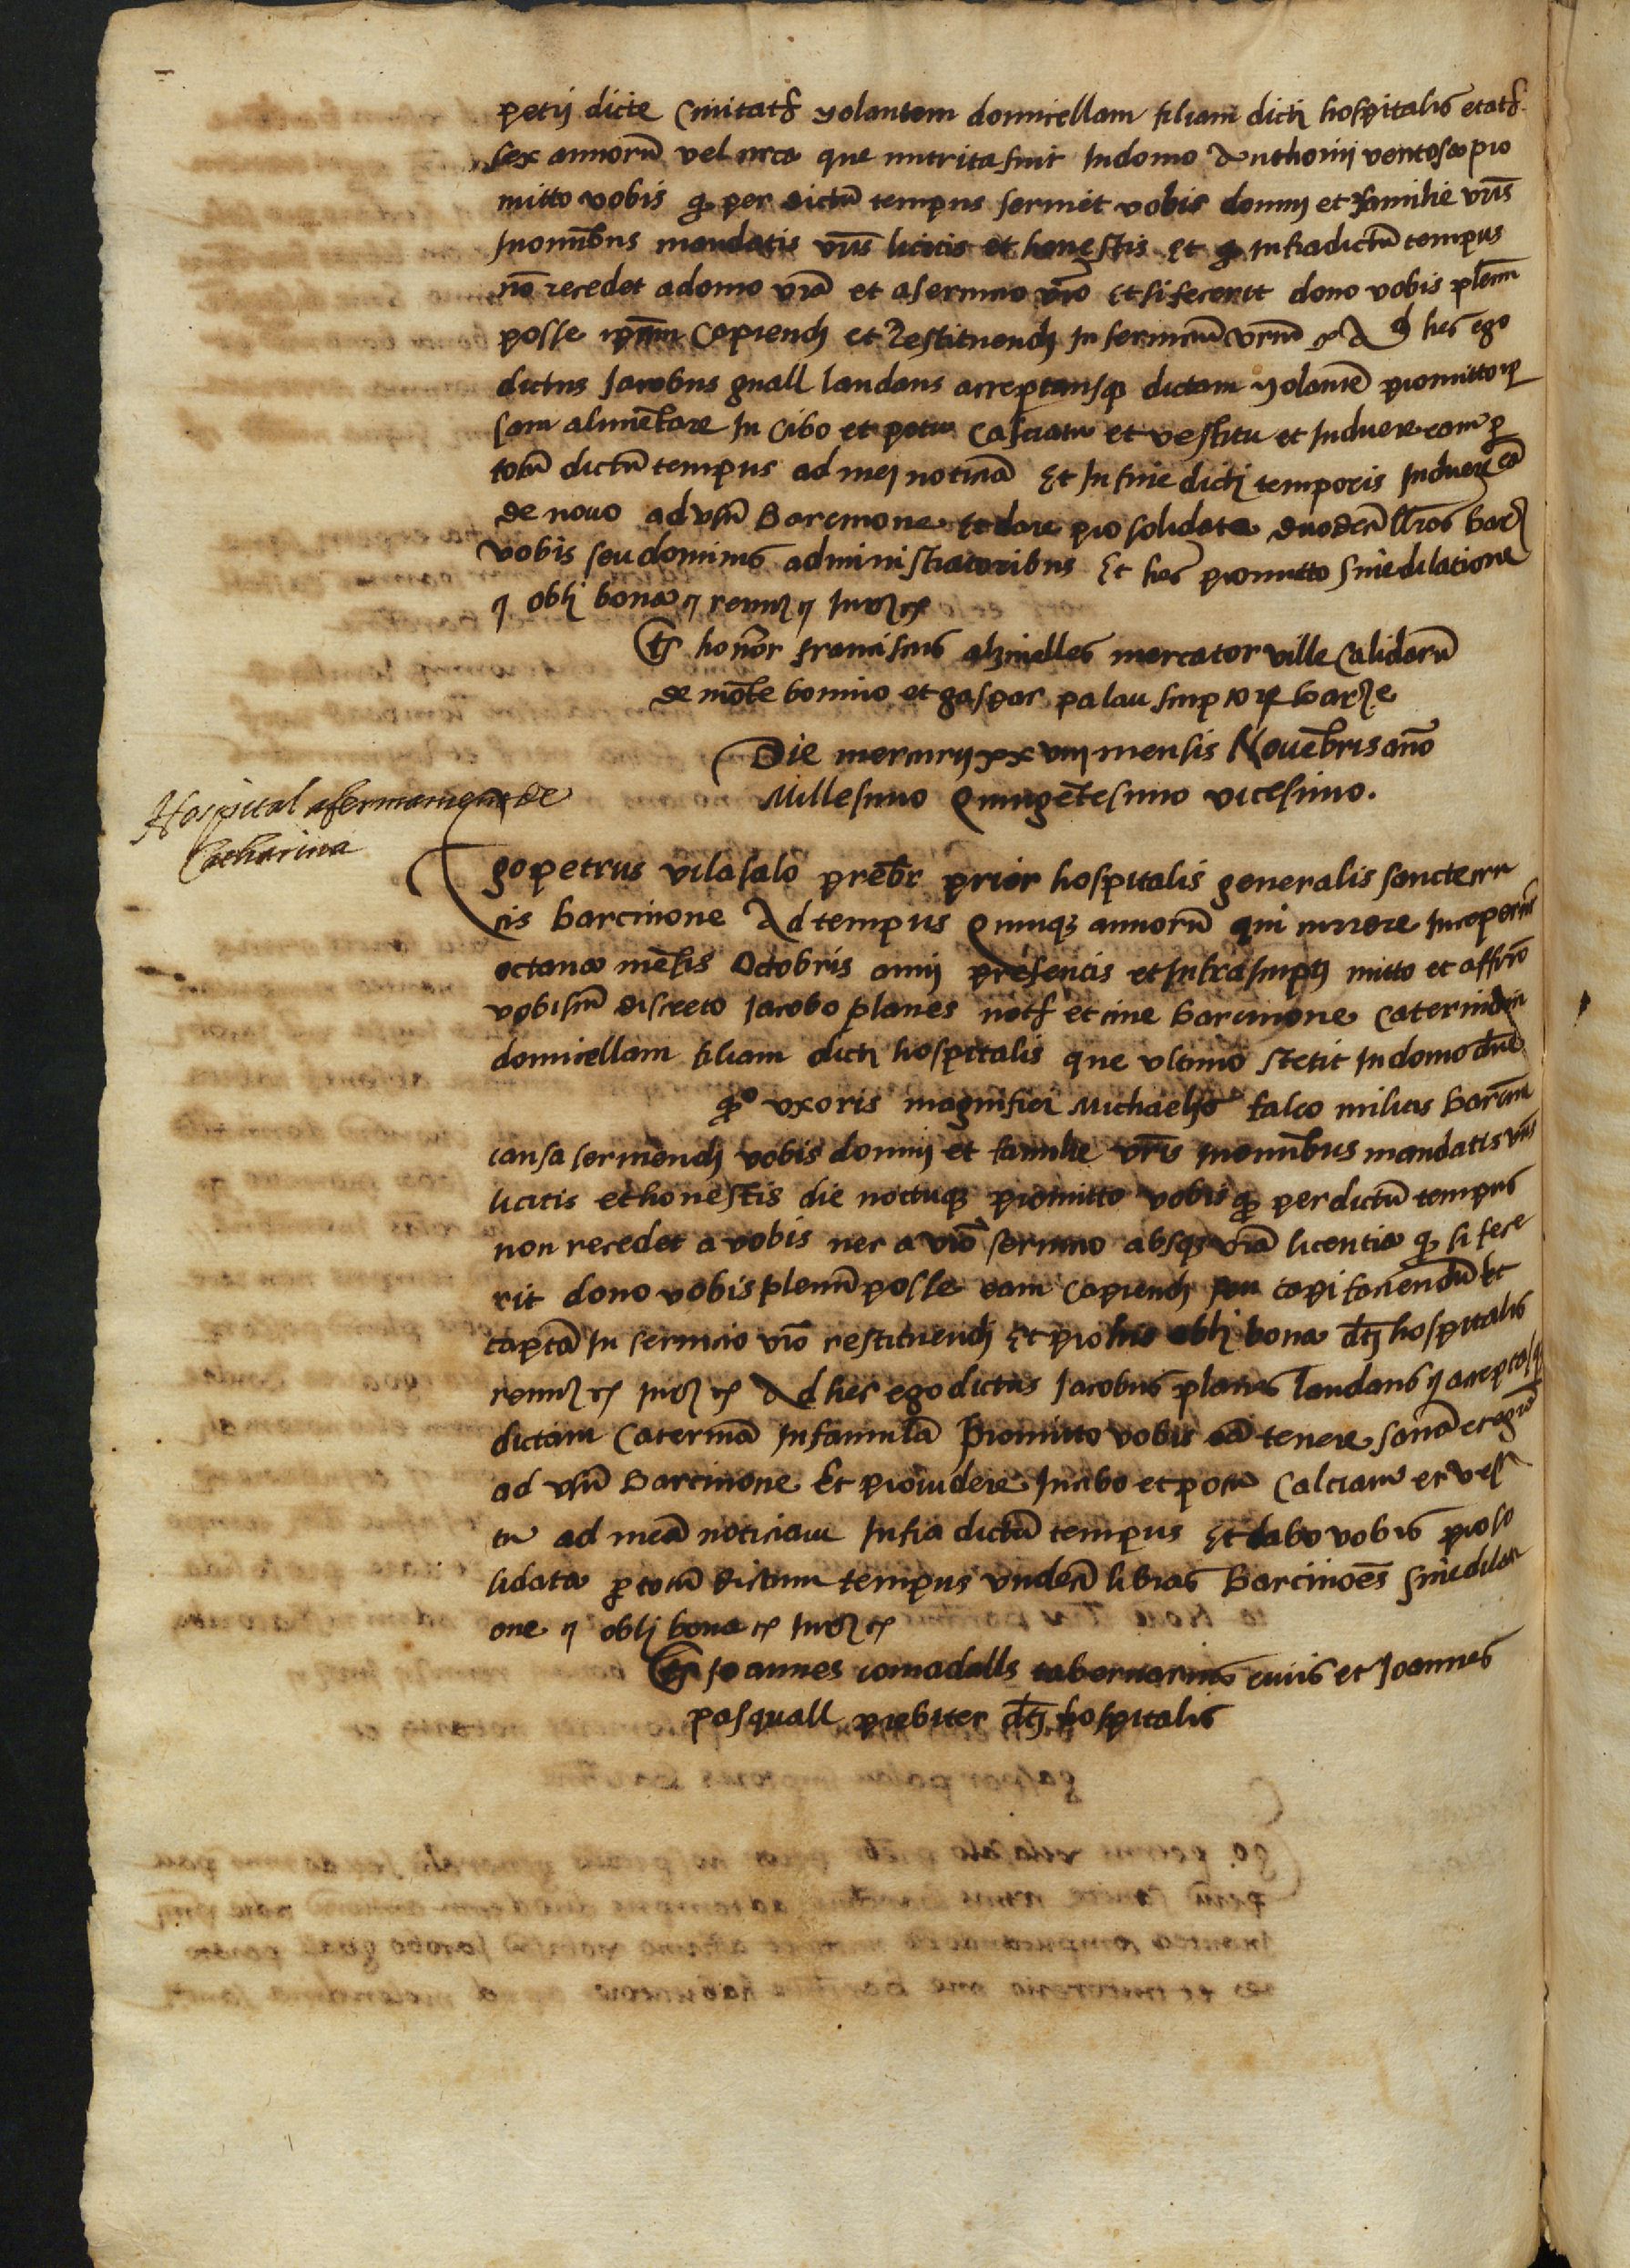 petij dicte Civitat(is) yolantem domicellam filiam dicti hospitalis etat(is)
sex annorũ vel circa que nutrita fuit In domo Anthonij ventosa pro
mitto vobis q̃ per dictũ tempus serviet vobis domui et familie vr̃is
In omnibus mandatis vr̃is licitis et honestis Et q̃ infra dictũ tempus
nõ recedet a domo vr̃a et a servicio vr̃o Et si fecerit dono vobis plenũ
posse ip̃am Capiendi et Restituendi In serviciũ vr̃m Ad hec ego
dictus Jacobus guall laudans acceptansq̃ dictam yolantẽ promitto ip̃
sam alimẽtare In Cibo et potu Calciatu et vestitu et Induere eam p̱
totũ dictũ tempus ad mei noticiã Et In fine dicti temporis Induere eã
de novo ad usũ Barcinone Et dare pro solidata duodecĩ ll̃ras Barch̃
vobis seu dominis administratoribus Et hec promitto sine dilatione
obli bona renũ Jurõ
T̃s honor̃ franciscus alzinelles mercator ville Calidarũ
de mõte bovino et gaspar palau scriptor Barch̃e
Die mercurij xxviij mensis Novẽbris año
Millesimo Quingẽtesimo vicesimo.
Hospital afermament de
Catharina
Ego petrus vilasalo prẽbr prior hospitalis generalis sancte cru
cis barcinone Ad tempus quinq̃ annorũ qui currere Inceperũt
octava mẽsis Octobris anni presentis et Infrascripti mitto et affirmo
vobiscũ discreto Jacobo planes not(ario) et cive barcinone Caterinam
domicellam filiam dicti hospitalis que ultimo stetit In domo dñe
q̃º uxoris magnifici Michaelis falco militis barcinõ
causa serviendi vobis domui et familie vr̃is In omnibus mandatis vr̃is
licitis et honestis die noctuq̃ promitto vobis q̃ per dictũ tempus
non recedet a vobis nec a vr̃o servicio absq̃ vr̃a licentia q̃ si fece
rit dono vobis plenũ posse eam capiendi seu capi faciendũ Et
captã In servicio vr̃o restituendi Et pro his obli bona dc̃i hospitalis
renũ Jurõ Ad hec ego dictus Jacobus planes laudans acceptãsq̃
dictam Caterinã In famulã Promitto vobis eã tenere sanã et egrã
ad usũ Barcinone Et providere In cibo et potu Calciatu et vesti
tu ad meã noticiam Infra dictũ tempus Et dabo vobis pro so
lidata p̱ totũ dictum tempus undecĩ libras Barcinoẽs sine dilati
one obli bona Jurõ
T̃s Joannes comadalls tabernarius civis et Joannes
pasquall prebiter dc̃i hospitalis